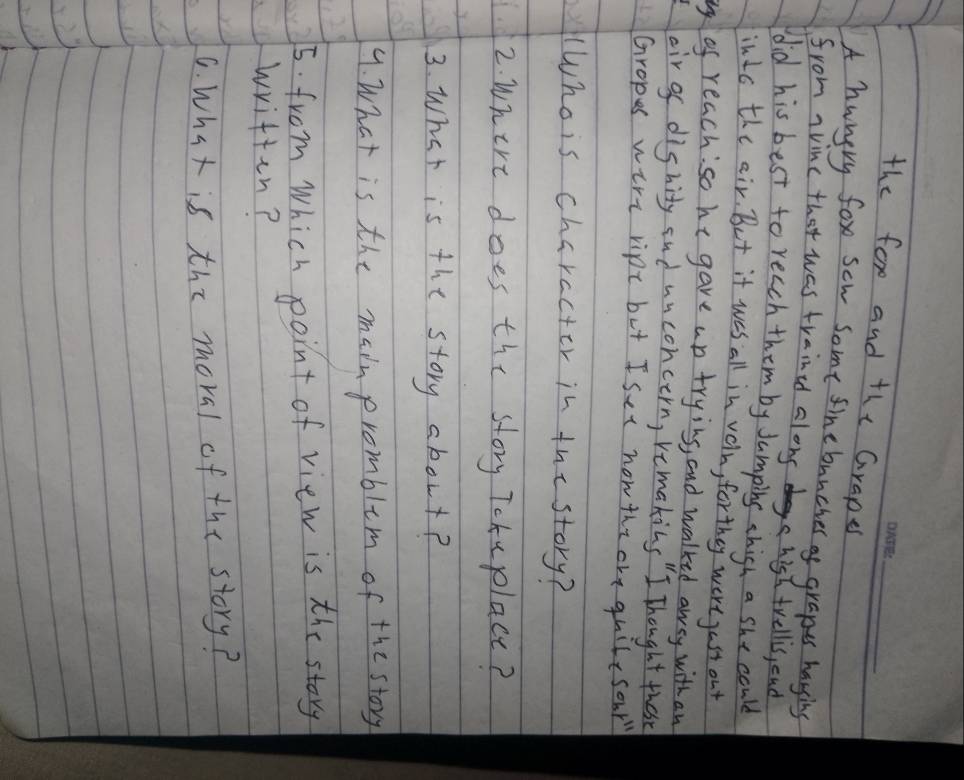 DATE:
the fox and the Grapes
A hungry fox saw some fine bunches of grapes hanging
from a vine that was trained along a high trellis, and
did his best to reach them by Jumping ahigh a she could
into the air. But it was all in vain, for they were just out
of reach: so he gave up trying, and walked away with an
air of dignity and unconcern, remaking "I Thought those
Grapes were ripe but I see now they are quite sour"
1 Who is character in the story?
2. Where does the story Take place?
3. What is the story about?
4. What is the main promblem of the story
5. from Which point of view is the story
written?
6. What is the moral of the story?